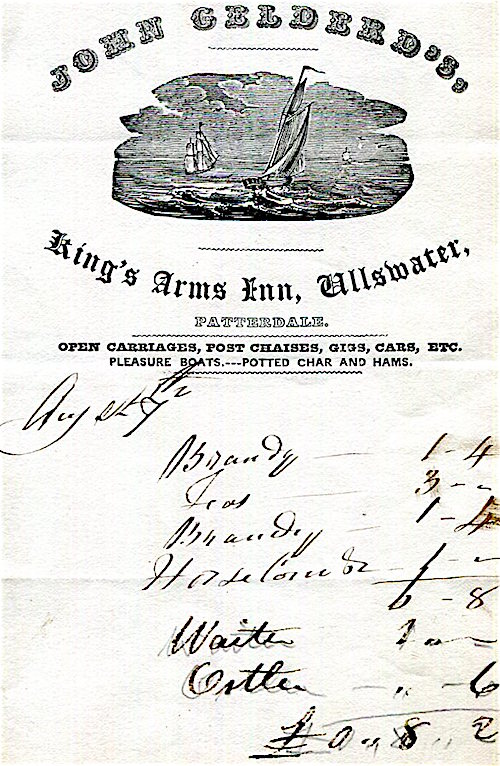 JOHN GELDERD'S,
King's Arms Inn, Ullswater,
PATTERDALE.
OPEN CARRIAGES, POST CHAISES, GIGS, CARS, ETC.
PLEASURE BOATS.---POTTED CHAR AND HAMS.
Brandy — 1 - 4
Teas — 3 - -
Brandy — 1 - 4
1 -
6 - 8
Waiter 1 - -
Ostler — " - 6
£ 0 " 8 " 2